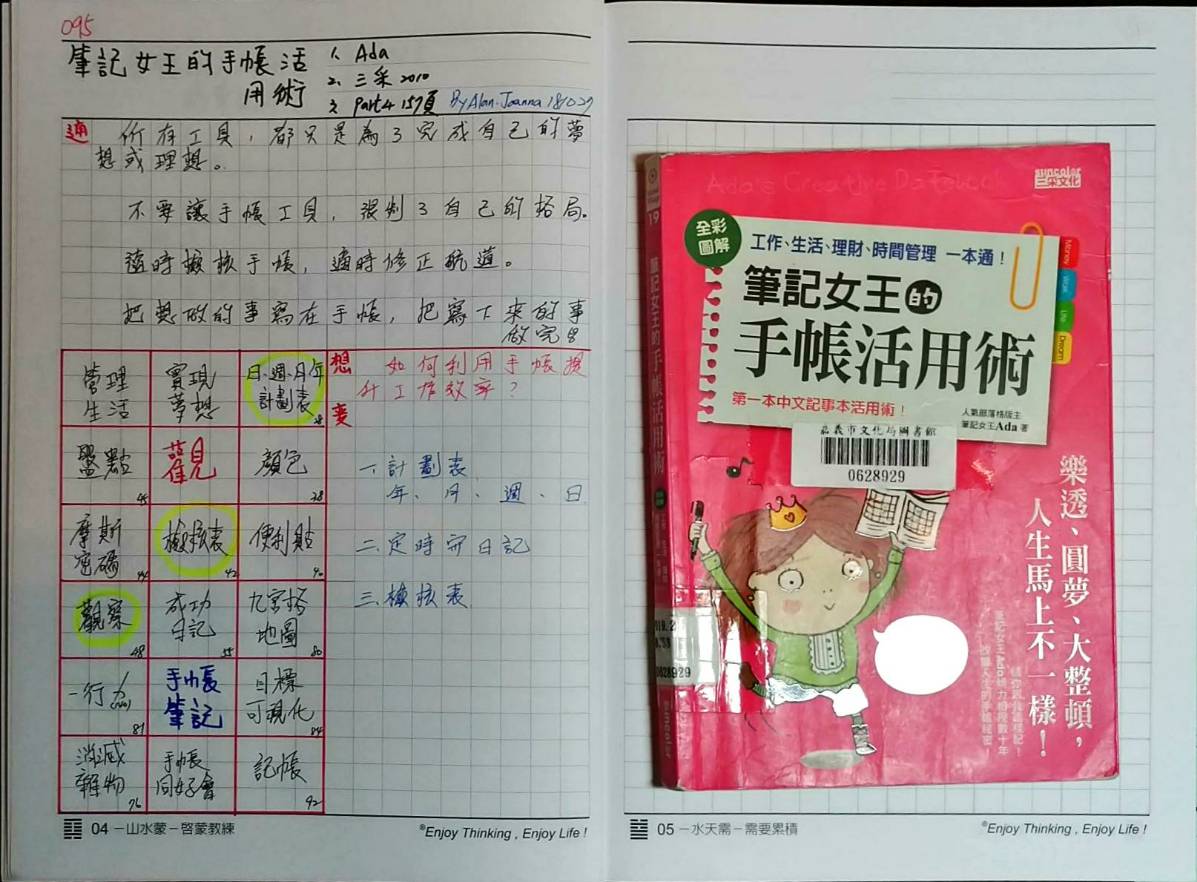 095
筆記女王的手帳活
用術
1. Ada
2. 三采 2010
3. Part4 157頁
By Alan.Joanna 181029
通
所有工具，都只是為了完成自己的夢
想或理想。
不要讓手帳工具，限制了自己的格局。
適時檢核手帳，適時修正航道。
把想做的事寫在手帳，把寫下來的事
做完
管理
生活
實現
夢想
日、週、月、年
計劃表
盤點
45
舊見
顏色
38
摩斯
密碼
44
檢核表
42
便利貼
40
觀察
48
成功
日記
55
九宮格
地圖
80
一行力
81
手帳
筆記
目標
可視化
84
消滅
雜物
76
手帳
同好會
記帳
92
想
如何利用手帳提
升工作效率？
要
一、計劃表
年、月、週、日
二、定時寫日記
三、檢核表
04 －山水蒙－啓蒙教練
®Enjoy Thinking , Enjoy Life !
suncolor
三采文化
全彩
圖解
工作、生活、理財、時間管理 一本通！
筆記女王的
手帳活用術
第一本中文記事本活用術！
人氣部落格版主
筆記女王Ada 著
Money
Work
Life
Dream
嘉義市文化局圖書館
0628929
樂透、圓夢、大整頓，
人生馬上不一樣！
19
筆記女王的手帳活用術
0628929
05 －水天需－需要累積
®Enjoy Thinking , Enjoy Life !